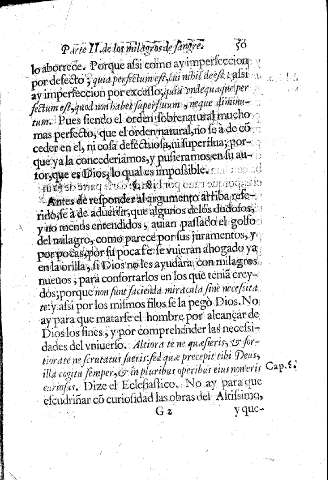 Parte II. de los milagros de sangre. 50
lo aborrece. Porque assi como ay imperfeccion
por defecto; quia perfectum est, cui nihil deest: assi
ay imperfeccion por excesso, quia undequaque per
fectum est, quod non habet superfluum, neque diminu-
tum. Pues siendo el orden sobrenatural mucho
mas perfecto, que el orden natural, no se à de cō
ceder en el, ni cosa defectuosa, ni superflua; por-
que ya la concederiamos, y pusieramos en su au-
tor, que es Dios, lo qual es impossible.
§. 8.
Antes de responder al argumento arriba refe-
rido, se à de aduertir, que algunos delos dudosos,
y no menos entendidos, auian passado el golfo
del milagro, como parece por sus juramentos, y
por pocas, por su poca fe se vuieran ahogado ya
en la orilla, si Dios no les ayudara con milagros
nueuos; para confortarlos en los que tenia crey-
dos; porque non sunt facienda miracula sinè necessita
te: y assi por los mismos filos se la pegò Dios. No
ay para que matarse el hombre por alcançar de
Dios los fines, y por comprehender las necessi-
dades del vniuerso. Altiora te ne quæsieris, & for-
tiora te ne scrutatus fueris: sed quæ precepit tibi Deus,
illa cogita semper, & in pluribus operibus eius non eris
curiosus. Dize el Eclesiastico. No ay para que
escudriñar cō curiosidad las obras del Altissimo,
Cap. 3.
G 2 y que-